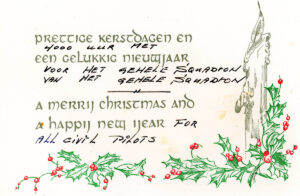 prettige kerstdagen en
4000 UUR MET
een gelukkig nieuwjaar
VOOR HET GEHELE SQUADRON
VAN HET GEHELE SQUADRON
a merry christmas and
a happy new year FOR
ALL CIVIL PILOTS